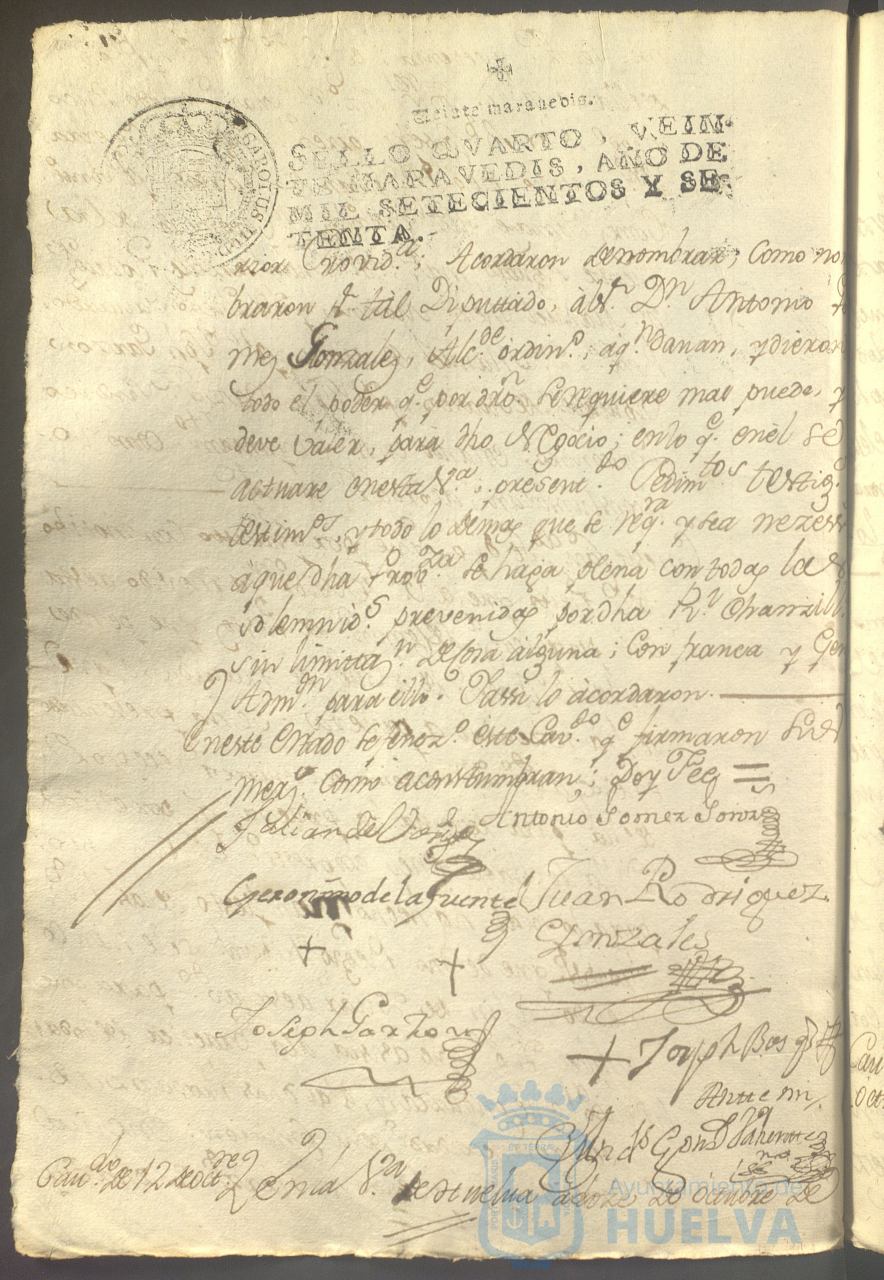 Veinte maravedis.
SELLO QVARTO, VEIN-
TE MARAVEDIS, AÑO DE
MIL SETECIENTOS Y SE-
TENTA.
CAROLUS
Acordaron de nombrar, como no
braron Pr. tal Diputtado, â el Sr. Dn. Antonio
mez Gonzalez, Alcde. ordino., âqn. davan, y dieron
todo el poder qe. por dro. se requiere mas puede, y
deve valer, para dho Negocio; en lo qe. en el se
actuare en esta Va., presentdo. Pedimtos testig.
testimos., y todo lo demas que se reqra. y sea nezess
â que dha Provza. se haga plena con todas las
solemnids. prevenidas por dha Rl. Chanzill
sin limittan. de cosa alguna; con franca y Gen
Admon. para ello. Y assi lo âcordaron.
En este estado se fenezo. este Cavdo. qe. firmaron sus
merzs. como acostumbran; Doy Fee =
Antonio Gomez Gonz
Julian del
Geronimo de la Fuente
Juan Rodriguez
Gonzales
Joseph Garzon
Joseph Bos
Antte mi,
Cavdo. de 12 de octre.
En la Va. de Huelva â doze de octubre de
Ayuntamiento de
HUELVA
Cav
Oct